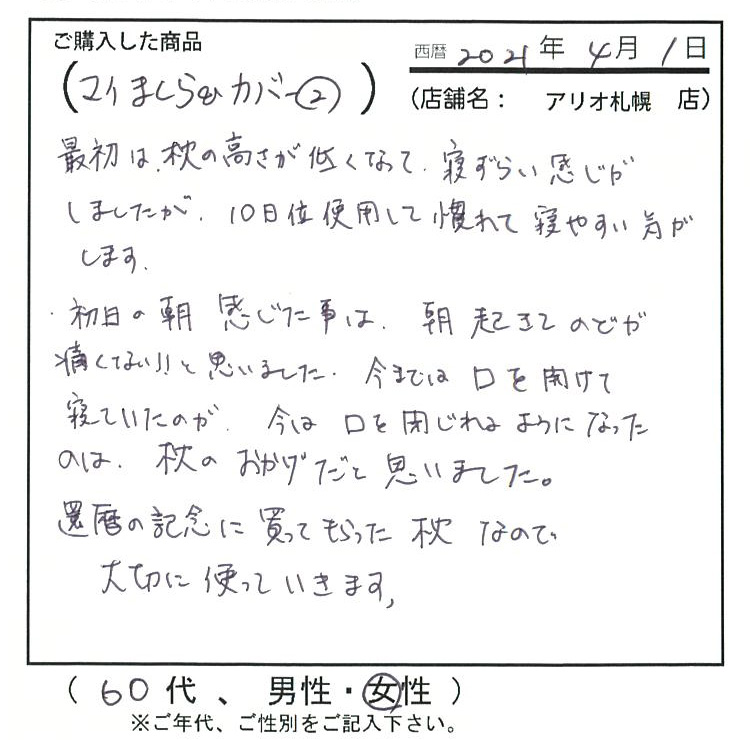 ご購入した商品
西暦 2021 年 4 月 1 日
(マイまくら&カバー②)
(店舗名: アリオ札幌 店)
最初は、枕の高さが低くなって、寝ずらい感じが
しましたが、10日位使用して慣れて寝やすい気が
します。
・初日の朝 感じた事は、朝起きてのどが
痛くない!!と思いました。今までは口を開けて
寝ていたのが、今は口を閉じれるようになった
のは、枕のおかげだと思いました。
還暦の記念に買ってもらった枕なので
大切に使っていきます。
( 60 代 、 男性・女性 )
※ご年代、ご性別をご記入下さい。